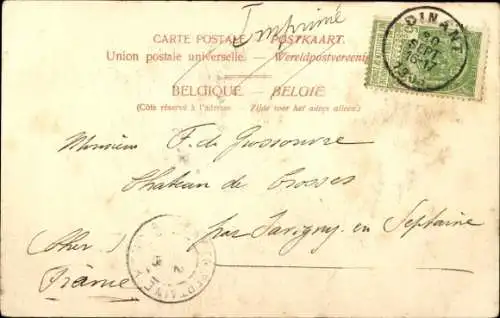 Imprimé
CARTE POSTALE. — POSTKAART.
Union postale universelle. — Wereldpostvereenig
BELGIQUE — BELGIË
(Côté réservé à l'adresse. Zijde voor het adres alleen.)
DINANT
SEPT
16-17
Monsieur F. de Grossouvre
Chateau de Crosses
par Savigny en Septaine
(Cher)
France
SEPTAINE